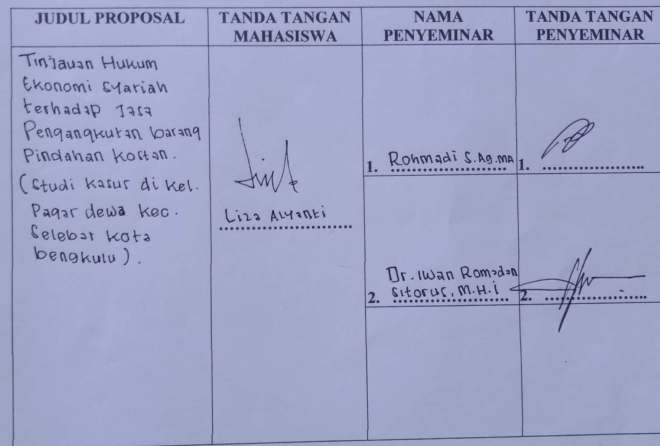 JUDUL PROPOSAL
TANDA TANGAN
MAHASISWA
NAMA
PENYEMINAR
TANDA TANGAN
PENYEMINAR
Tinjauan Hukum
Ekonomi Syariah
terhadap Jasa
Pengangkutan barang
Pindahan Kostan.
(Studi kasus di kel.
Pagar dewa kec.
Selebar kota
bengkulu).
Liza Alyanti
1. Rohmadi S.Ag.MA
1.
2. Dr. Iwan Romadan
Sitorus, M.H.i
2.